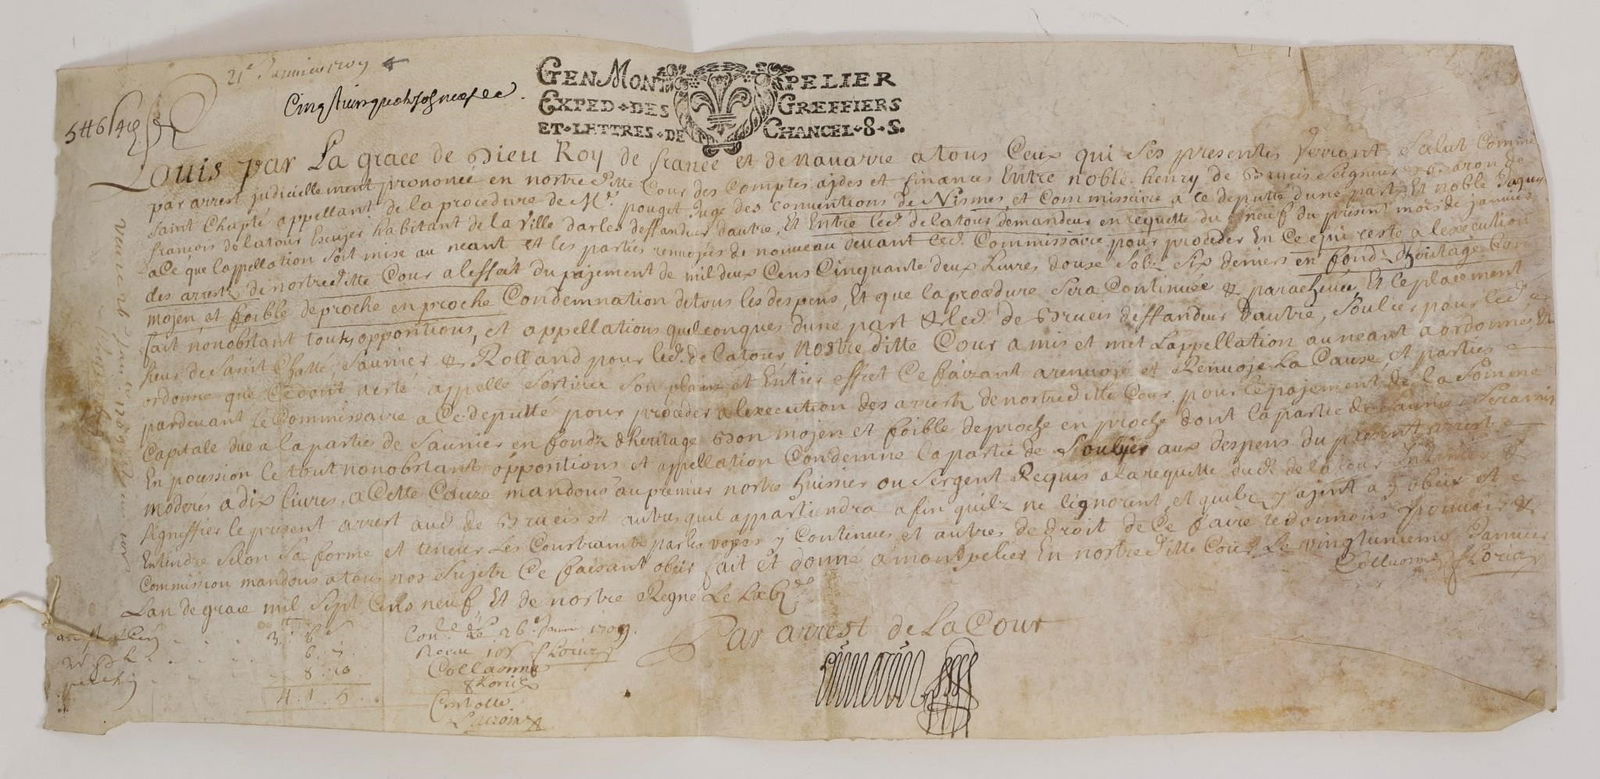 21e Janvier 1709
GEN MONTPELIER
EXPED DES GREFFIERS
ET LETTRES DE CHANCEL 8 S.
Louis par La grace de Dieu Roy de france et de navarre a tous Ceux qui Ses presentes Verront Salut Comme
par arrest judiciellement prononcé en nostre ditte Cour des Comptes aides et finances Entre noble henry de Brueis Seigneur & Baron de
Saint Chapte appellant de la procedure de Mr. pouget Juge des conventions de Nismes et Commissaire a ce deputté dune part Et noble Jaques
francois de latour Escuyer habitant de la Ville darles deffandeur dautre, Et Entre led. de latour demandeur en requette du neuf du present mois de Janvier
a Ce que lappellation soit mise au neant et les parties renvoyés de nouveau devant led. Commissaire pour proceder En Ce qui reste a lexecution
des arrests de nostre ditte Cour a leffait du payement de mil deux Cens Cinquante deux Livres douse sols Six deniers en fondz dheritage bon
mojen et foible de proche en proche Condemnation de tous les despens, Et que la procedure Sera Continuée & parachevée Et le placement
fait nonobstant toutes oppositions, et appellations quelconques dune part & led. de Brueis deffandeur dautre, Soulier pour led.
Sieur de Saint Chatte, Saunier & Rolland pour led. de latour Nostre ditte Cour a mis et met Lappellation au neant a ordonné Et
ordonne que Ce dont a esté appellé Sortira Son plain et Entier effect Ce faizant a renvoyé et Renvoje La Cause et parties
pardevant le Commissaire a Ce deputté pour proceder a lexecution des arrests de nostre ditte Cour pour le pajement de la Somme
Capitale due a la partie de Saunier en fondz dheritage Bon mojen et foible de proche en proche dont la partie de Saunier Sera mis
En poussion le tout nonobstant oppositions et appellation Condemne la partie de Soulier aux despens du present arrest
moderés a dix livres, a Cette Cauze mandons au premier nostre huissier ou Sergent Requis a la requette dud. de latour Intimer &
Signiffier le present arrest aud. de Brueis et autres quil appartiendra afin quilz ne lignorent, et quilz y ajent a obeir et
Entendre Selon Sa forme et teneur Les Constraindre par les voyes y Contenues et autres de droit de Ce faire te donnons pouvoir &
Commission mandons a tous nos Sujets Ce faisant obeir fait et donné a montpelier En nostre ditte Cour Le vingtunieme Janvier
Lan de grace mil Sept Cens neuf, Et de nostre Regne Le
Collaonné florie
Conlé Le 26e Janv 1709
Receu florie
Collaonné
florie
Controllé
Lacroix
Par arrest de La Cour
3. 6.
6. 7.
8. 10
4. 1. 5